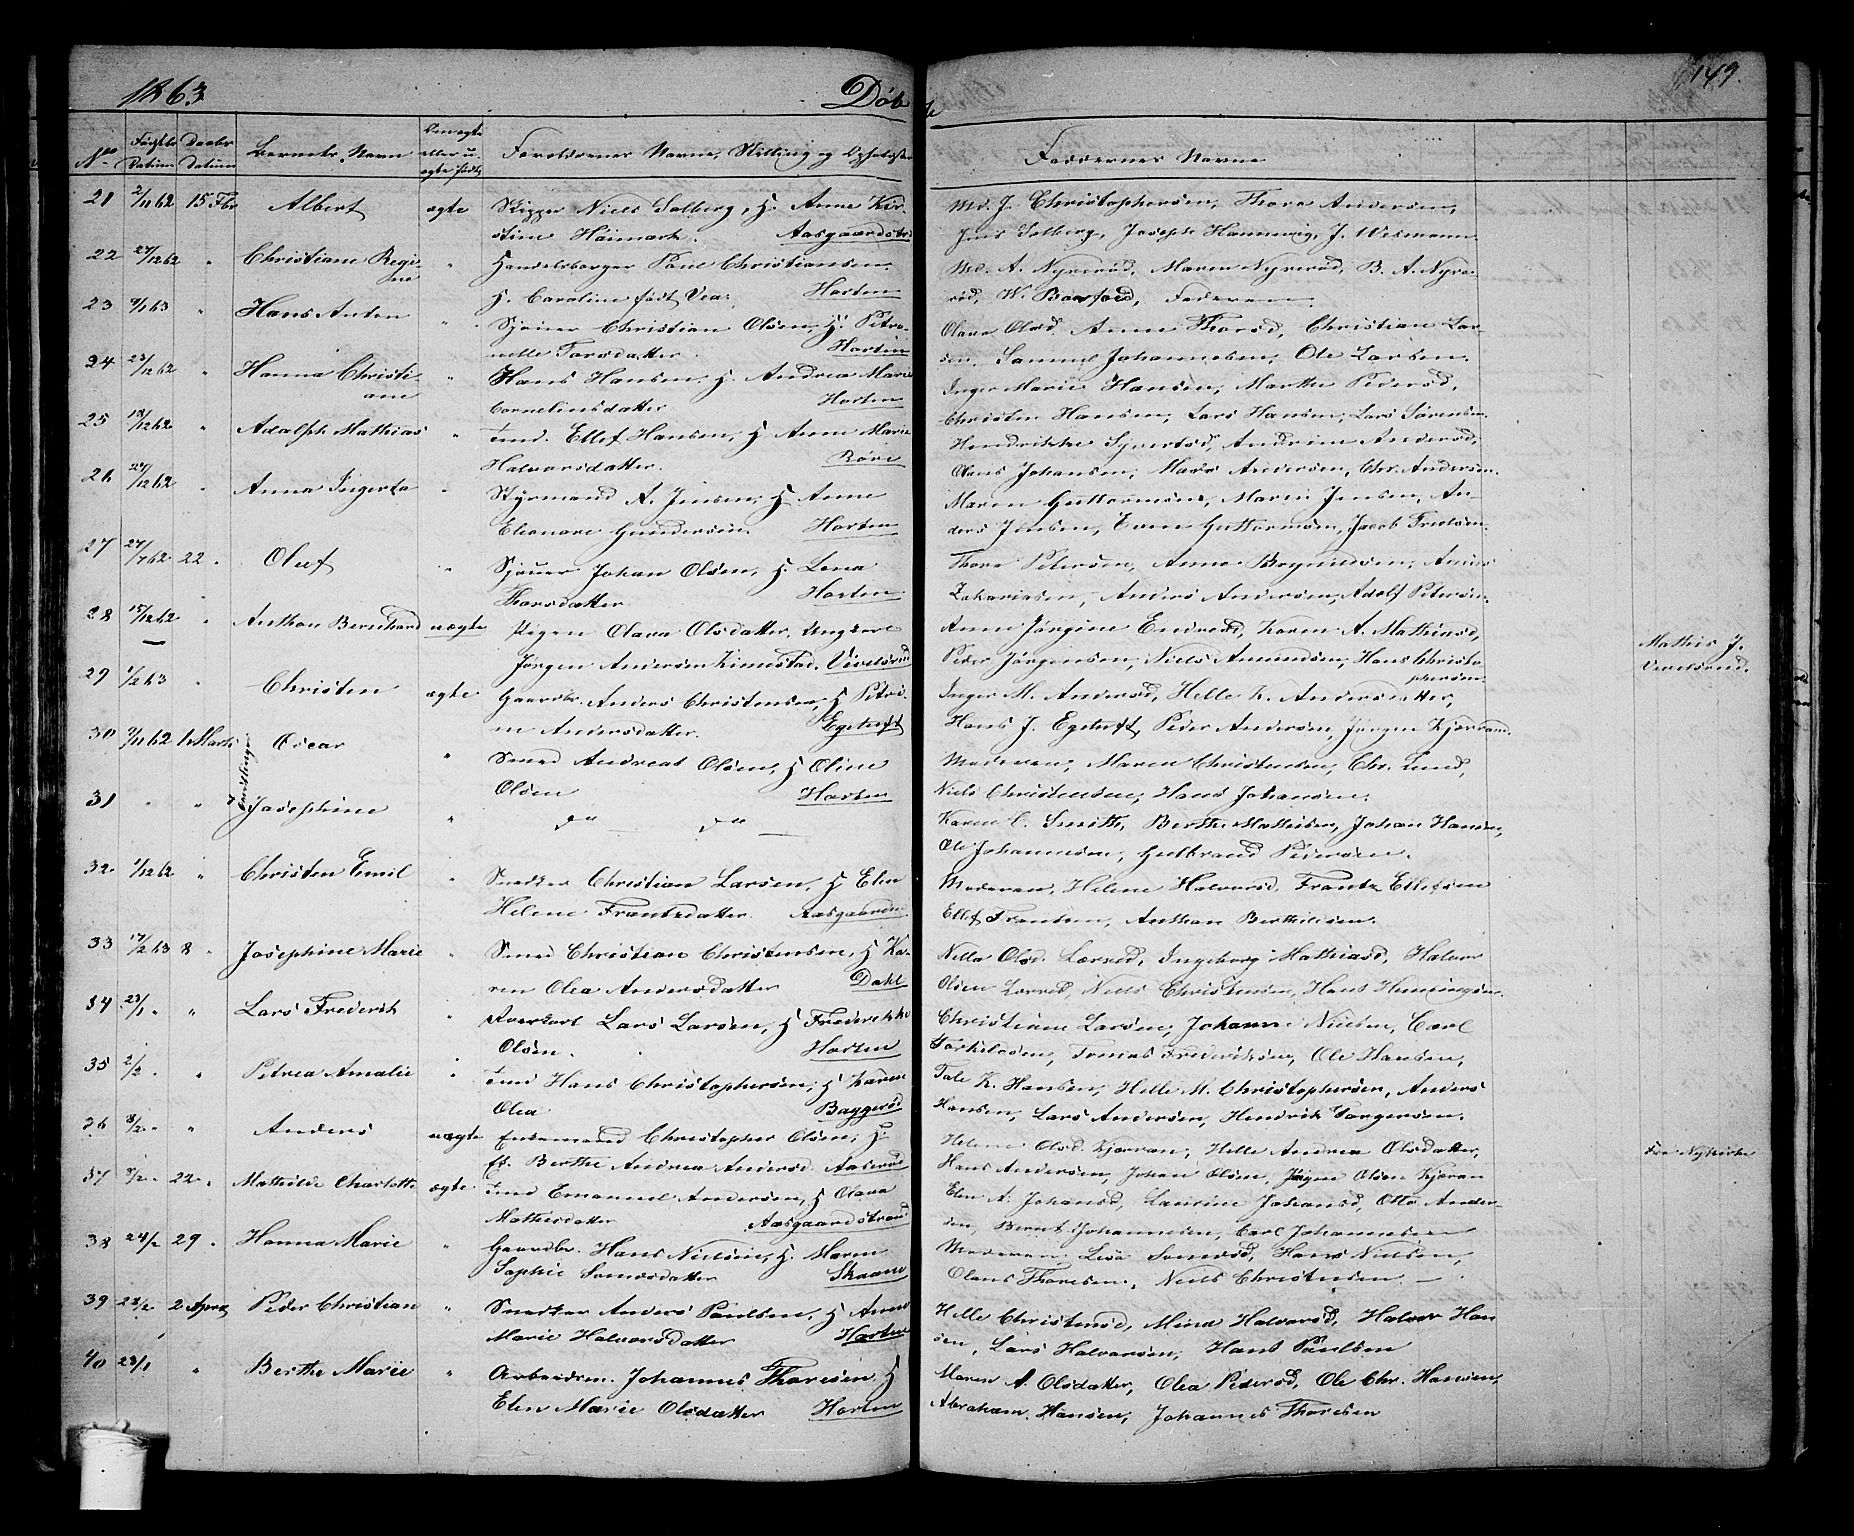 1863
Døbte
149.
No
Fødsels Datum
Daabs Datum
Barnets Navn
ægte eller u-ægte født
Forældrenes Navne, Stilling og Opholdssted
Faddernes Navne
21 2/11 62 15 Fbr Albert ægte Skipper Niels Solberg, H. Anne Kir-
stine Heimark. Aasgaardstr
J. Christophersen, Thora Andersen,
Jens Solberg, Joseph Hannevig, J. Wismann.
22 27/12 62 " Christiane Regi-
ne " Handelsborger Paul Christiansen.
H. Caroline født Vea. Horten
A. Nyrerød, Maren Nyrerød, B. A. Nyre-
rød, W. Faderen.
23 9/1 63 " Hans Anton " Sjouer Christian Olsen, H. Petro-
nelle Torsdatter. Horten
Olava Olsd. Anne Thorsd, Christian Lar-
sen. Samuel Johannesen, Ole Larsen.
24 23/12 62 " Hanna Christi-
ane " Hans Hansen, H. Andrea Marie
Corneliusdatter Horten
Inger Marie Hansen, Marthe Pedersd,
Christen Hansen, Lars Hansen, Lars Sørensen.
25 18/12 62 " Adolph Mathias " Tmd. Ellef Hansen, H Anne Marie
Halvorsdatter. Røre
Hendrikke Syvertsd, Andrine Andersd,
Olaus Johansen, Mads Andersen, Chr. Andersen.
26 27/12 62 " Anna Ingerta " Styrmand A. Jensen, H Anne
Eleonore Gundersen Horten
Maren Guttormsen, Maren Jensen, An-
ders Jensen, Even Guttormsen, Jacob
27 27/7 62 22 " Oluf " Sjouer Johan Olsen, H. Lena
Thorsdatter. Horten
Thora Petersen, Anne
Zachariasen, Anders Andersen, Adolf Petersen.
28 15/12 62 " Anthon Bernhard uægte Pigen Olava Olsdatter. Ungkarl
Jørgen Andersen
Anne Jørgine Karen A. Mathiasd,
Peder Jørgensen, Niels Amundsen, Hans Christo-
phersen
Mathis J.
29 1/2 63 " Christen ægte Gaardbr. Anders Christensen, H Petri-
ne Andersdatter. Egetuft
Inger M. Andersd, Helle K. Andersdatter,
Hans J. Egetuft, Peder Andersen, Jørgen
30 7/11 62 1 Marts Oscar " Smed Andreas Olsen, H Oline
Olsen Horten
Tvillinger
Moderen, Maren Christensen, Chr. Lund,
Niels Christensen, Hans Johansen.
31 " " Josephine " do do
Karen C. Smith, Berthe Mathisen, Johan Hansen,
Ole Johannesen, Gulbrand Pedersen.
32 1/12 62 " Christen Emil " Snedker Christian Larsen, H Elen
Helene Frantzdatter.
Moderen, Helene Halvorsd, Frantz Ellefsen
Ellef Frantsen, Anthon Berthilesen.
33 17/2 63 8 " Josephine Marie " Smed Christian Christensen, H Ka-
ren Olea Andersdatter Dahl
Nella Olsd. Ingeborg Mathiasd, Halvor
Olsen Niels Christensen, Hans Henningsen
34 23/1 " " Lars Frederik " Lars Larsen, H Frederikke
Olsen. Horten
Christiane Larsen, Johanne Nielsen, Carl
Torkilsen, Tomas Frederiksen, Ole Hansen,
35 2/2 " Petrea Amalie " Tmd Hans Christophersen, H Karen
Olea Baggerød
Tale K. Hansen, Helle M. Christophersen, Anders
Hansen, Lars Andersen, Hendrik Torgersen.
36 8/2 " " Anders uægte Enkemand Christopher Olsen, H.
ft. Berthe Andrea Andersd.
Helene Olsd. Helle Andrea Olsdatter,
Hans Andersen, Johan Olsen, Jørgen Olsen
Fra Nykirke
37 8/2 " 22 " Mathilde Charlotte ægte Tmd Emanuel Andersen, H Olava
Mathisdatter Aasgaardstrand
Elen A. Johansd, Laurine Johansd, Otto Ander-
sen, Bernt Johannesen, Carl Johannesen
38 24/2 29 " Hanna Marie " Gaardbr. Hans Nielsen, H. Maren
Sophie Skaane
Moderen Lisa Hans Nielsen,
Olaus Thoresen, Niels Christensen —
39 22/2 2 April Peder Christian " Snedker Anders Paulsen, H Anne
Marie Halvorsdatter Horten
Helle Christensd, Mina Halvorsd, Halvor Han
sen, Lars Halvorsen, Hans Paulsen
40 23/1 " Berthe Marie " Arbeidsm. Johannes Thoresen H
Elen Marie Olsdatter Horten
Maren A. Olsdatter, Olea Pedersd, Ole Chr. Hansen,
Abraham Hansen, Johannes Thoresen